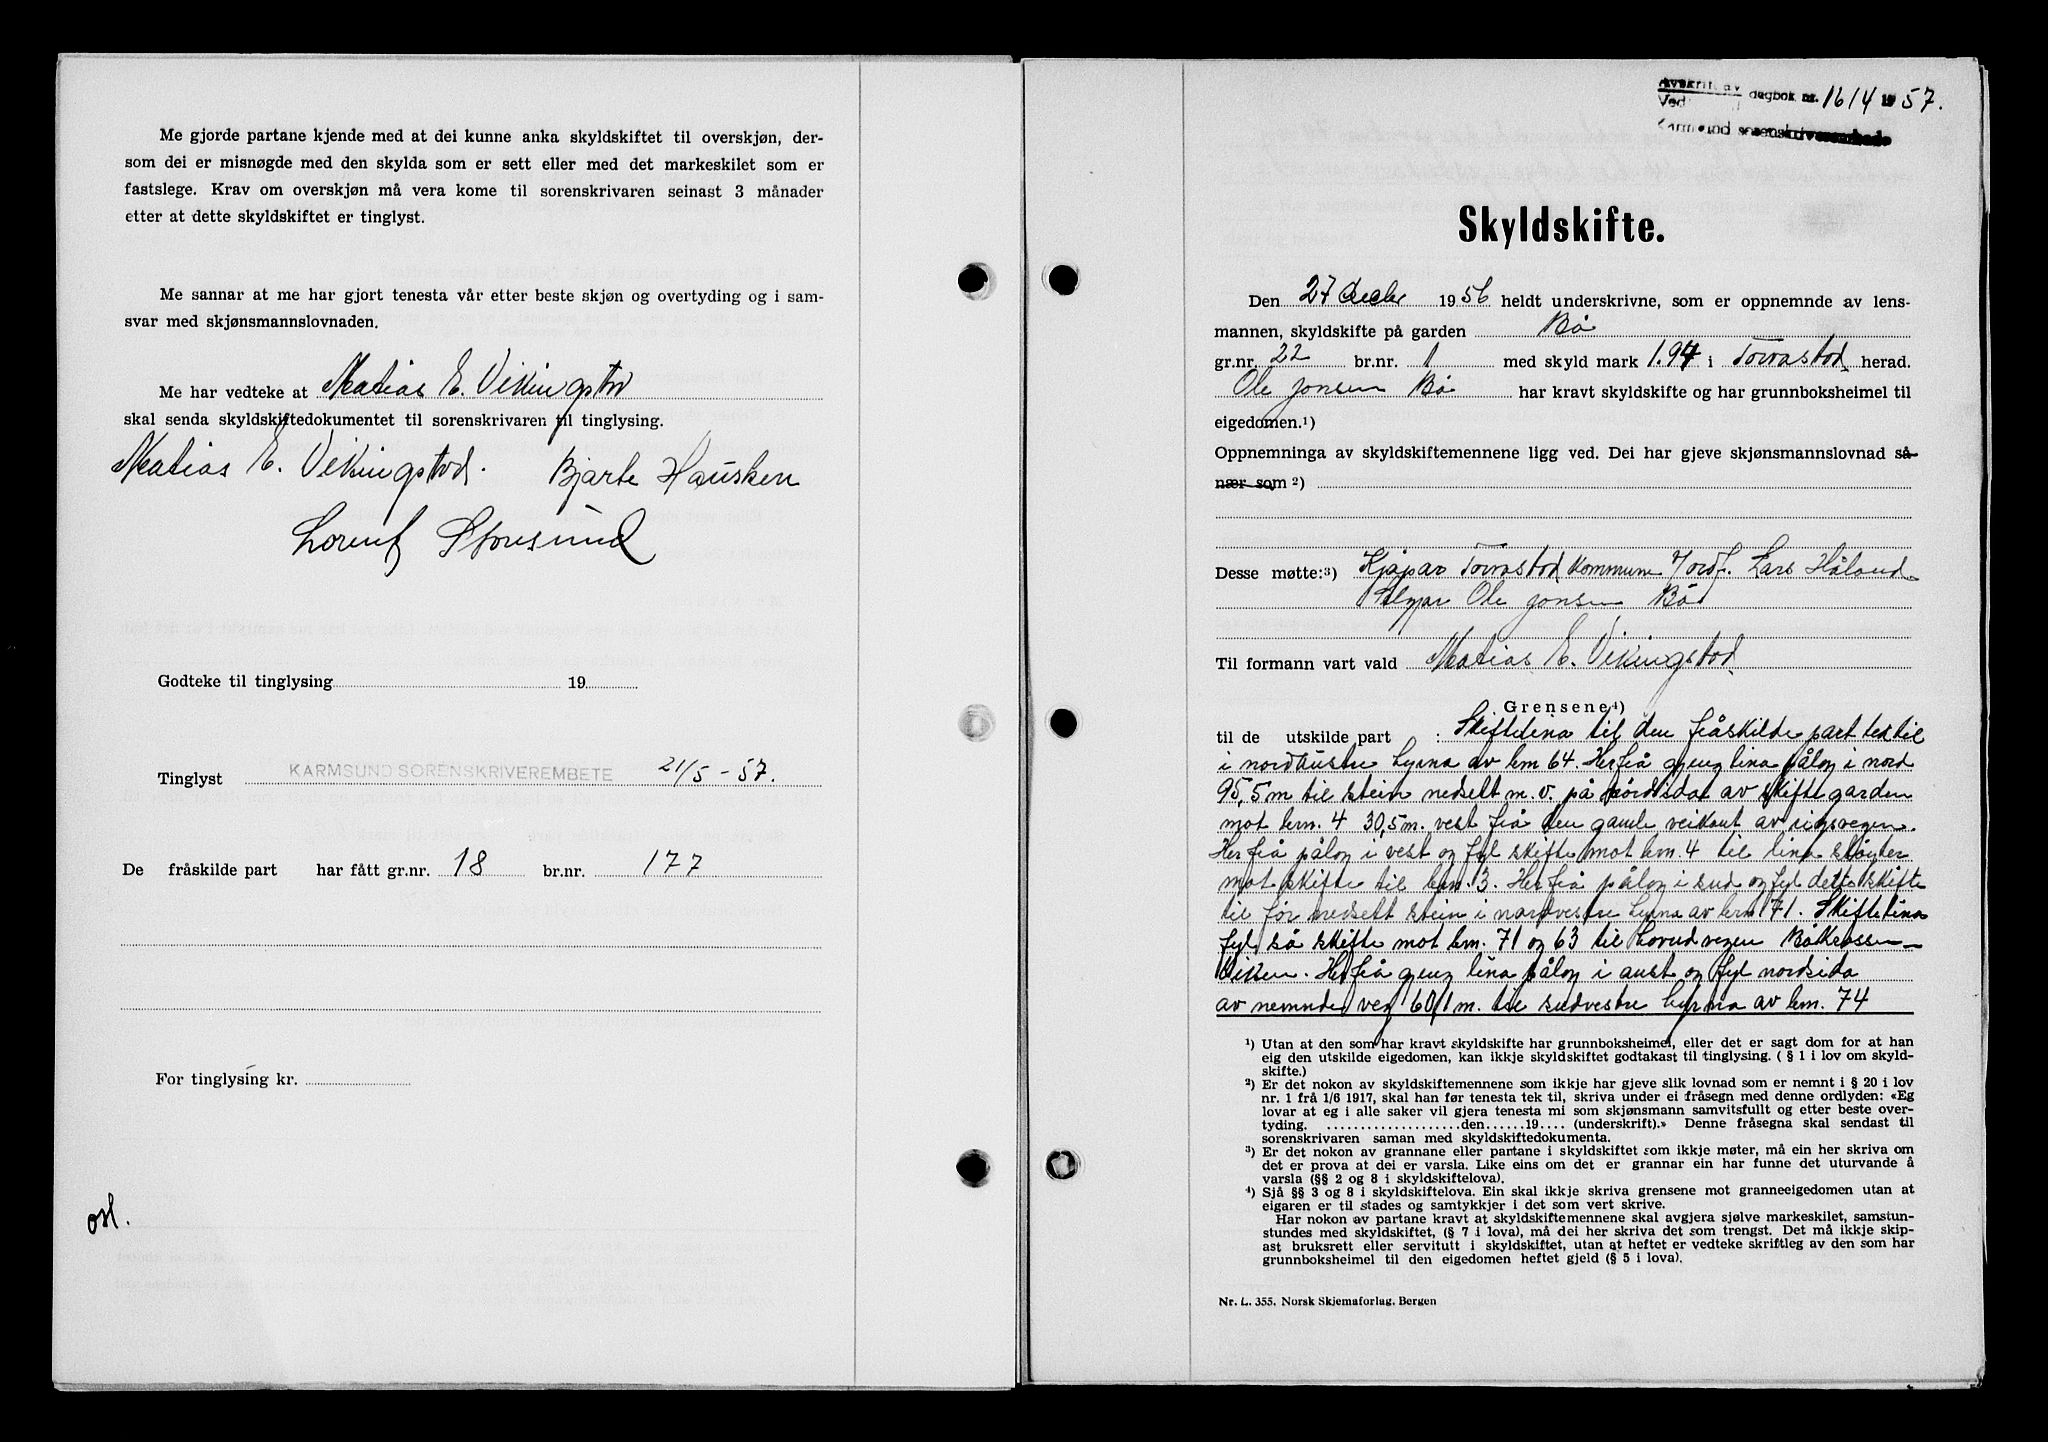 Me gjorde partane kjende med at dei kunne anka skyldskiftet til overskjøn, der-
som dei er misnøgde med den skylda som er sett eller med det markeskilet som er
fastslege. Krav om overskjøn må vera kome til sorenskrivaren seinast 3 månader
etter at dette skyldskiftet er tinglyst.
Me sannar at me har gjort tenesta vår etter beste skjøn og overtyding og i sam-
svar med skjønsmannslovnaden.
Me har vedteke at Matias E. Vikingstad
skal senda skyldskiftedokumentet til sorenskrivaren til tinglysing.
Matias E. Vikingstad. Bjarte Hausken
Lorentz Storesund
Godteke til tinglysing 19
Tinglyst KARMSUND SORENSKRIVEREMBETE 21/5-57.
De fråskilde part har fått gr.nr. 18 br.nr. 177
For tinglysing kr.
Avskrift av
Ved dagbok nr. 1614 1957.
Karmsund sorenskriverembede
Skyldskifte.
Den 27 decbr 1956 heldt underskrivne, som er oppnemnde av lens-
mannen, skyldskifte på garden Bø
gr.nr. 22 br.nr. 1 med skyld mark 1.94 i Torvastad herad.
Ole Jonsen Bø har kravt skyldskifte og har grunnboksheimel til
eigedomen.¹)
Oppnemninga av skyldskiftemennene ligg ved. Dei har gjeve skjønsmannslovnad så-
nær som ²)
Desse møtte:³) Kjøpar Torvastad kommune v/ordf. Lars Håland
Seljar Ole Jonsen Bø
Til formann vart vald Matias E. Vikingstad
Grensene⁴)
til de utskilde part : Skiftelina til den fråskilde part tek til
i nordaustre hyrna av bm 64. Herfrå gjeng lina pålag i nord
95,5 m til stein nedsett m. v. på nordsida av skiftegarden
mot bm. 4 30,5 m. vest frå den gamle veikant av rigsvegen.
Herfrå pålag i vest og fyl skifte mot bm. 4 til lina støyter
mot skifte til bm. 3. Herfrå pålag i sud og fyl dette skifte
til før nedsett stein i nordvestre hyrna av bm 71. Skiftelina
fyl så skifte mot bm. 71 og 63 til hovudvegen Bøkrossen-
Viken. Herfrå gjeng lina pålag i aust og fyl nordsida
av nemnde veg 60,1 m. til sudvestre hyrna av bm. 74
¹) Utan at den som har kravt skyldskifte har grunnboksheimel, eller det er sagt dom for at han
eig den utskilde eigedomen, kan ikkje skyldskiftet godtakast til tinglysing. (§ 1 i lov om skyld-
skifte.)
²) Er det nokon av skyldskiftemennene som ikkje har gjeve slik lovnad som er nemnt i § 20 i lov
nr. 1 frå 1/6 1917, skal han før tenesta tek til, skriva under ei fråsegn med denne ordlyden: «Eg
lovar at eg i alle saker vil gjera tenesta mi som skjønsmann samvitsfullt og etter beste over-
tyding. ....................den......19.... (underskrift).» Denne fråsegna skal sendast til
sorenskrivaren saman med skyldskiftedokumenta.
³) Er det nokon av grannane eller partane i skyldskiftet som ikkje møter, må ein her skriva om
det er prova at dei er varsla. Like eins om det er grannar ein har funne det uturvande å
varsla (§§ 2 og 8 i skyldskiftelova).
⁴) Sjå §§ 3 og 8 i skyldskiftelova. Ein skal ikkje skriva grensene mot granneeigedomen utan at
eigaren er til stades og samtykkjer i det som vert skrive.
Har nokon av partane kravt at skyldskiftemennene skal avgjera sjølve markeskilet, samstun-
stundes med skyldskiftet, (§ 7 i lova), må dei her skriva det som trengst. Det må ikkje skip-
ast bruksrett eller servitutt i skyldskiftet, utan at heftet er vedteke skriftleg av den som har
grunnboksheimel til den eigedomen heftet gjeld (§ 5 i lova).
Nr. L. 355. Norsk Skjemaforlag. Bergen